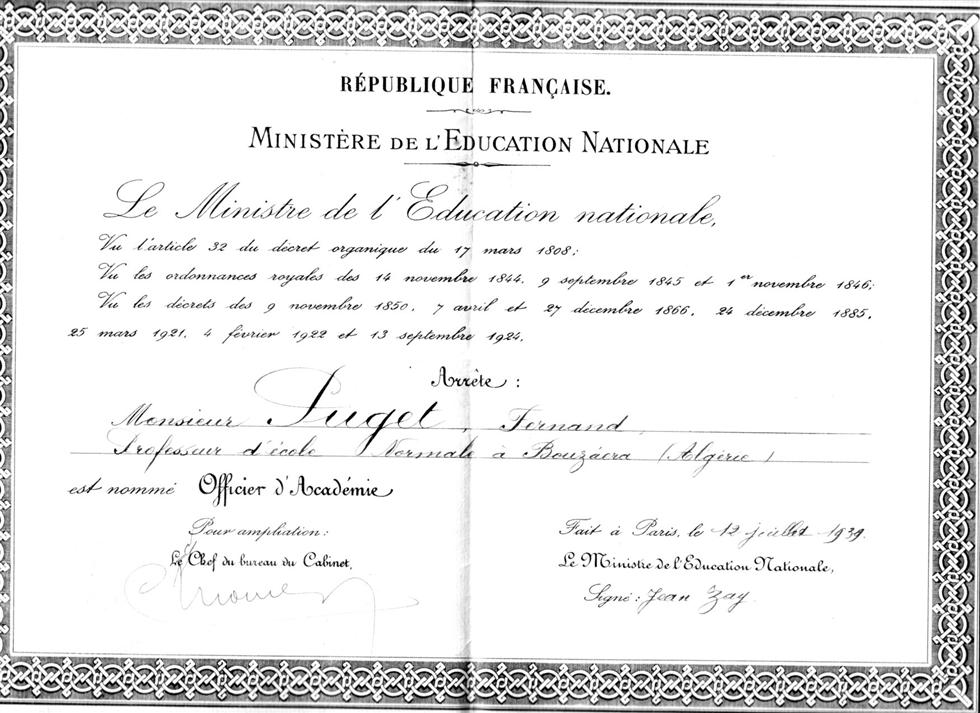 RÉPUBLIQUE FRANÇAISE.
MINISTÈRE DE L'EDUCATION NATIONALE
Le Ministre de l'Education nationale,
Vu l'article 32 du décret organique du 17 mars 1808;
Vu les ordonnances royales des 14 novembre 1844, 9 septembre 1845 et 1er novembre 1846;
Vu les décrets des 9 novembre 1850, 7 avril et 27 décembre 1866, 24 décembre 1885,
25 mars 1921, 4 février 1922 et 13 septembre 1924,
Arrête :
Monsieur Puget, Fernand,
Professeur d'école Normale à Bouzáera (Algérie)
est nommé Officier d'Académie
Pour ampliation:
Le Chef du bureau du Cabinet,
Fait à Paris, le 12 juillet 1939.
Le Ministre de l'Education Nationale,
Signé: Jean Zay